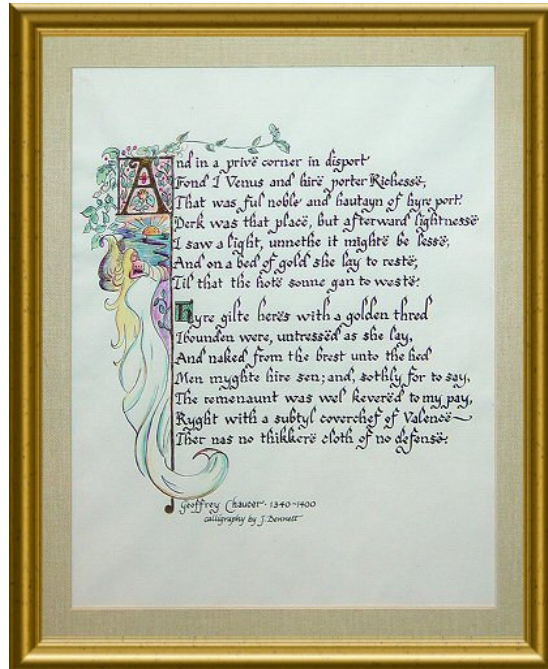 And in a privë corner in disport
Fond I Venus and hirë porter Richessë,
That was ful noble and hautayn of hyre port.
Derk was that placë, but afterward lightnessë
I saw a light, unnethe it mightë be lessë,
And on a bed of gold she lay to restë,
Til that the hotë sonne gan to westë.
Hyre gilte herës with a golden thred
Ibounden were, untressëd as she lay,
And naked from the brest unto the hed
Men myghte hire sen; and, sothly for to say,
The remenaunt was wel keverëd to my pay,
Ryght with a subtyl coverchef of Valencë~
Ther nas no thikkerë cloth of no defensë.
Geoffrey Chaucer · 1340~1400
calligraphy by J. Dennett